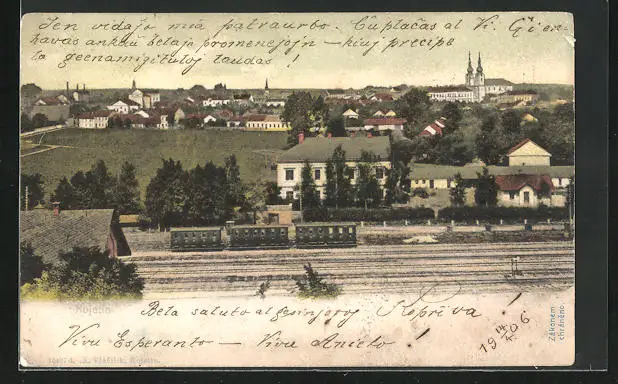 Jen vidaĵo mia patraurbo. Ĉu plaĉas al Vi. Ĉi en-
havas ankaŭ belajn promenejojn — kiuj precipe
la geenamiĝituloj laŭdas!
Kojetín
Bela saluto al gesinjoroj Kopřiva
Vivu Esperanto — Vivu Anieto
19 06
Zákonem
chráněno.